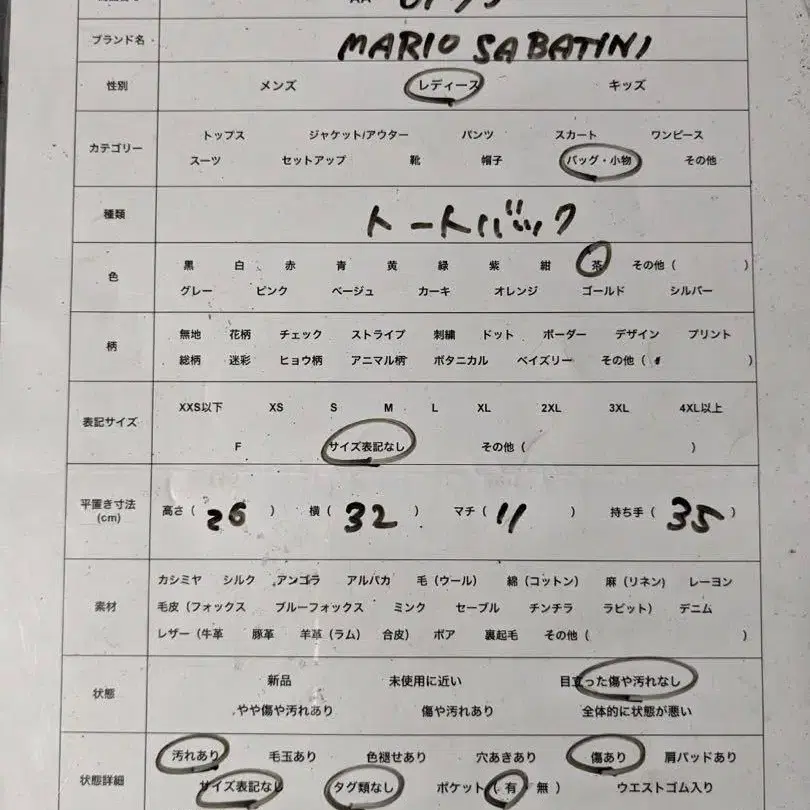 ブランド名 MARIO SABATINI
性別 メンズ レディース キッズ
カテゴリー トップス ジャケット/アウター パンツ スカート ワンピース
スーツ セットアップ 靴 帽子 バッグ・小物 その他
種類 トートバック
色 黒 白 赤 青 黄 緑 紫 紺 茶 その他 ( )
グレー ピンク ベージュ カーキ オレンジ ゴールド シルバー
柄 無地 花柄 チェック ストライプ 刺繍 ドット ボーダー デザイン プリント
総柄 迷彩 ヒョウ柄 アニマル柄 ボタニカル ペイズリー その他 ( )
表記サイズ XXS以下 XS S M L XL 2XL 3XL 4XL以上
F サイズ表記なし その他 ( )
平置き寸法 (cm) 高さ ( 26 ) 横 ( 32 ) マチ ( 11 ) 持ち手 ( 35 )
素材 カシミヤ シルク アンゴラ アルパカ 毛 (ウール) 綿 (コットン) 麻 (リネン) レーヨン
毛皮 (フォックス ブルーフォックス ミンク セーブル チンチラ ラビット) デニム
レザー (牛革 豚革 羊革 (ラム) 合皮) ボア 裏起毛 その他 ( )
状態 新品 未使用に近い 目立った傷や汚れなし
やや傷や汚れあり 傷や汚れあり 全体的に状態が悪い
状態詳細 汚れあり 毛玉あり 色褪せあり 穴あきあり 傷あり 肩パッドあり
サイズ表記なし タグ類なし ポケット ( 有 無 ) ウエストゴム入り